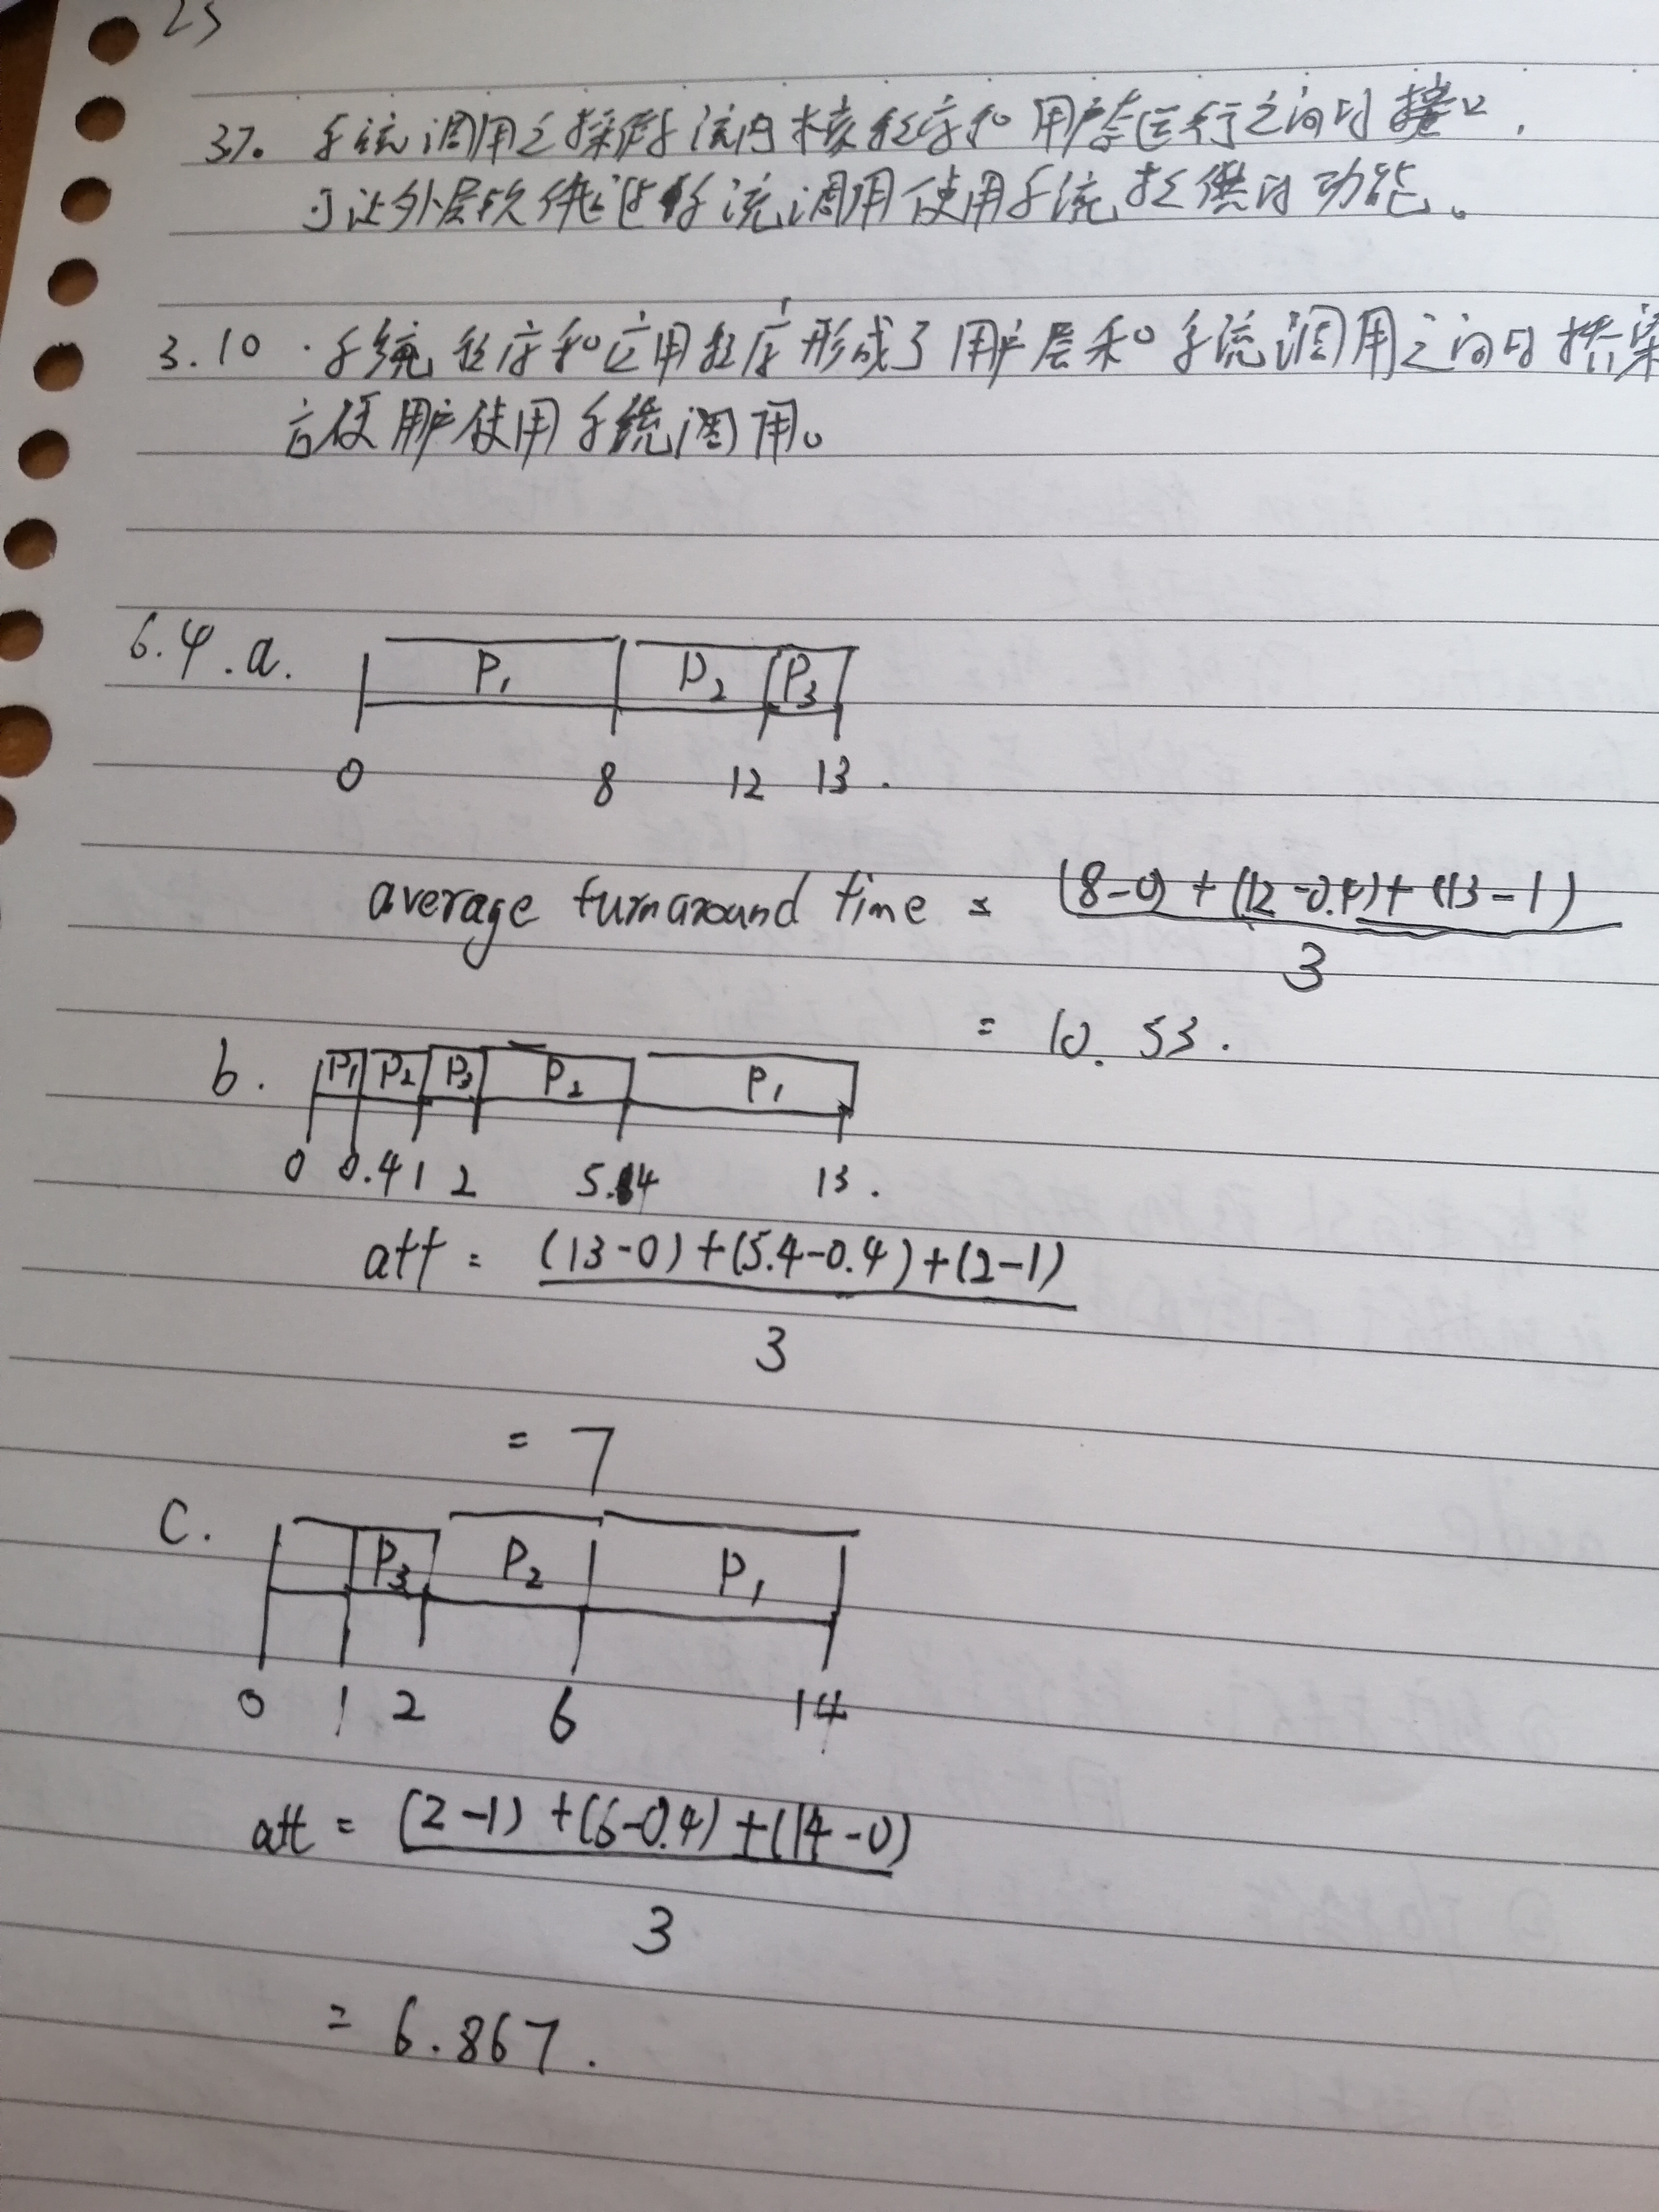 23
37. 系统调用是操作系统内核程序和用户态运行之间的接口,
可让外层软件通过系统调用使用系统提供的功能。
3.10 · 系统程序和应用程序形成了用户层和系统调用之间的桥梁
方便用户使用系统调用。
6.4.a.
P1 P2 P3
0 8 12 13 .
average turnaround time = (8-0)+(12-0.4)+(13-1)
3
= 10.53.
b. P1 P2 P3 P2 P1
0 0.4 1 2 5.4 13 .
att = (13-0)+(5.4-0.4)+(2-1)
3
= 7
C. P3 P2 P1
0 1 2 6 14
att = (2-1)+(6-0.4)+(14-0)
3
= 6.867.